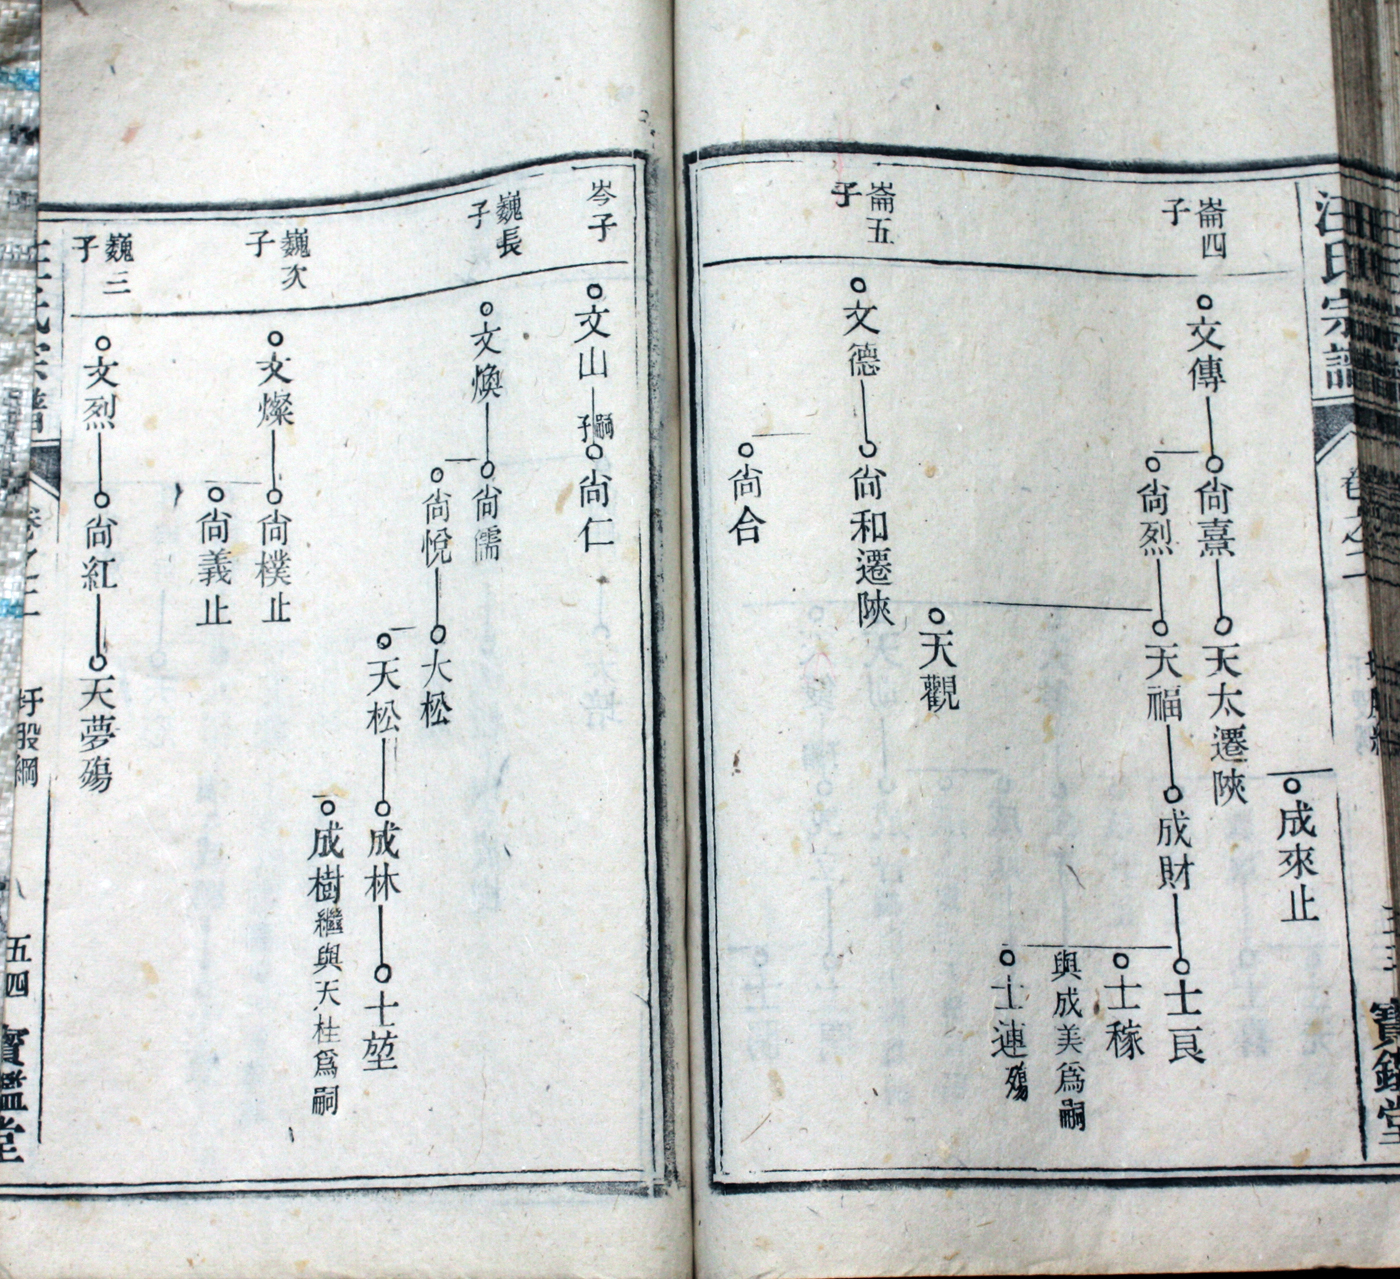 汪氏宗譜
卷之二
寶鑑堂
成來止
崙四子
文傳
尙熹
天太遷陝
尙烈
天福
成財
士良
士稼
與成美爲嗣
士連殤
天觀
崙五子
文德
尙和遷陝
尙合
岑子
文山
嗣子
尙仁
巍長子
文煥
尙儒
尙悅
大松
天松
成林
士堃
成樹繼與天桂爲嗣
巍次子
文燦
尙樸止
尙義止
巍三子
文烈
尙紅
天夢殤
卷之二
圩股綱
五四
寶鑑堂